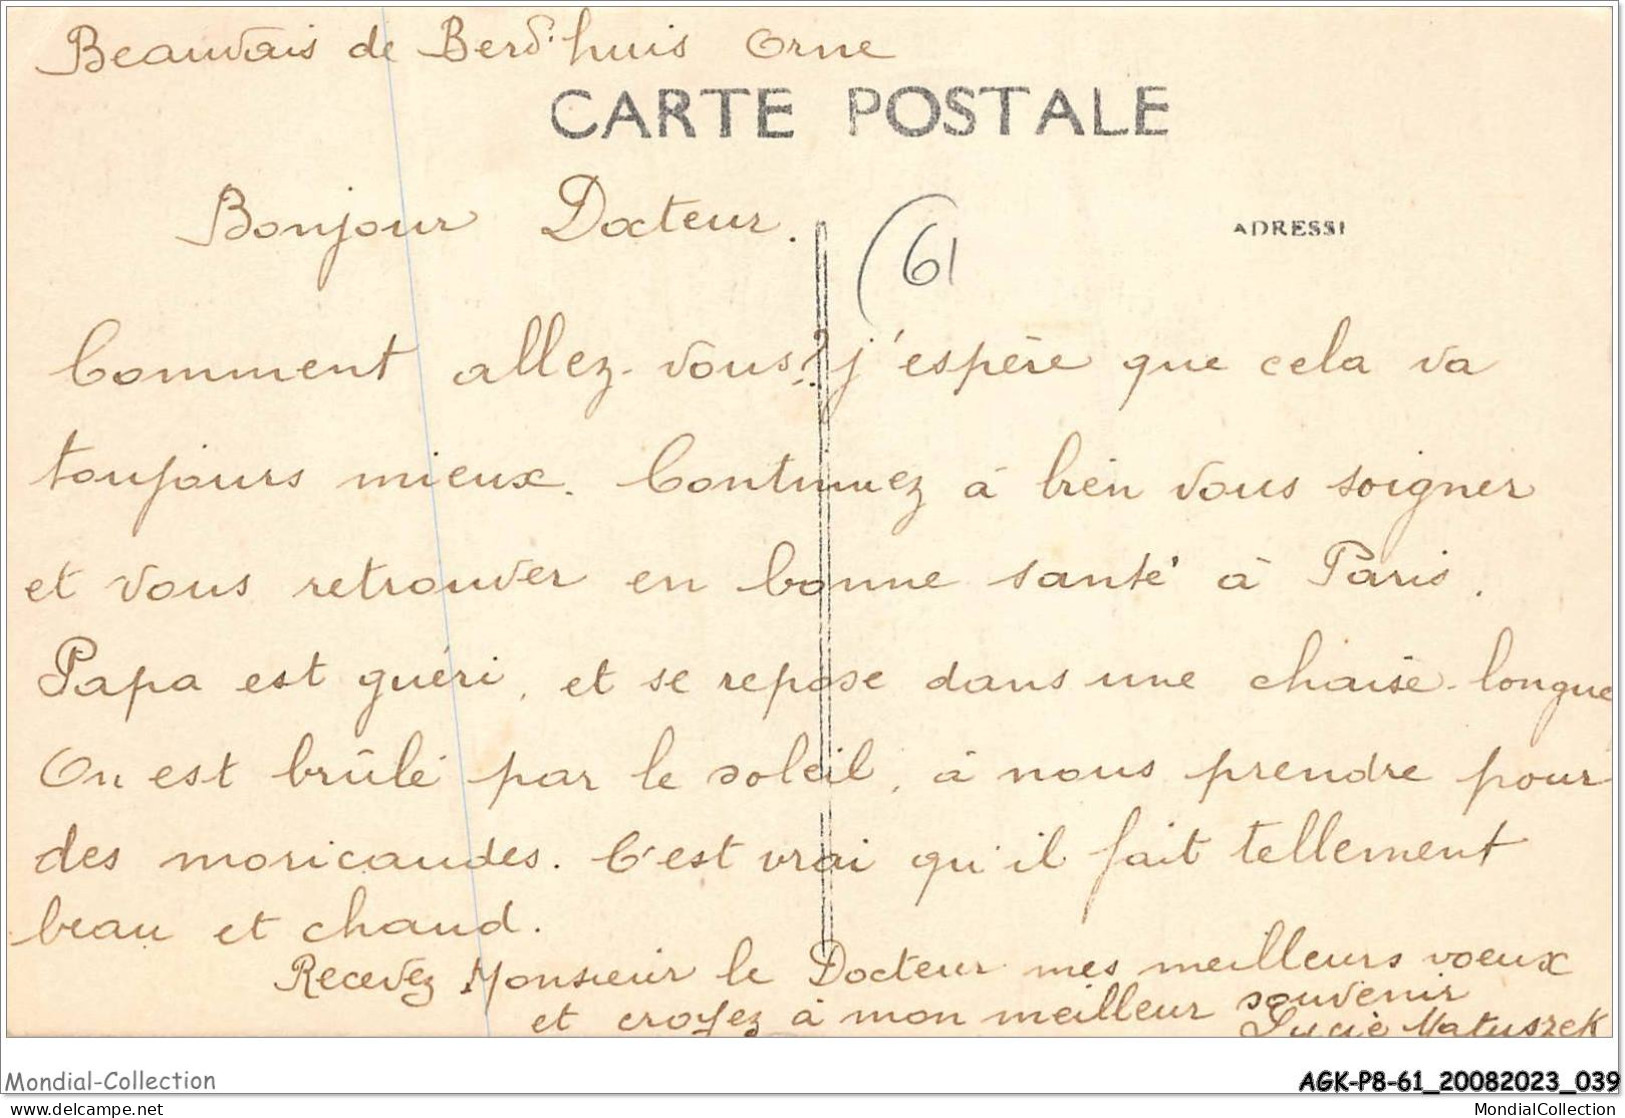 Beauvais de Berd'huis Orne
CARTE POSTALE
Bonjour Docteur.
61
ADRESSE
Comment allez-vous? j'espère que cela va
toujours mieux. Continuez à bien vous soigner
et vous retrouver en bonne santé à Paris.
Papa est guéri, et se repose dans une chaise-longue
On est brûlé par le soleil, à nous prendre pour
des moricaudes. C'est vrai qu'il fait tellement
beau et chaud.
Recevez Monsieur le Docteur mes meilleurs voeux
et croyez à mon meilleur souvenir
Lucie Matuszek
Mondial-Collection
AGK-P8-61_20082023_039
www.delcampe.net
MondialCollection